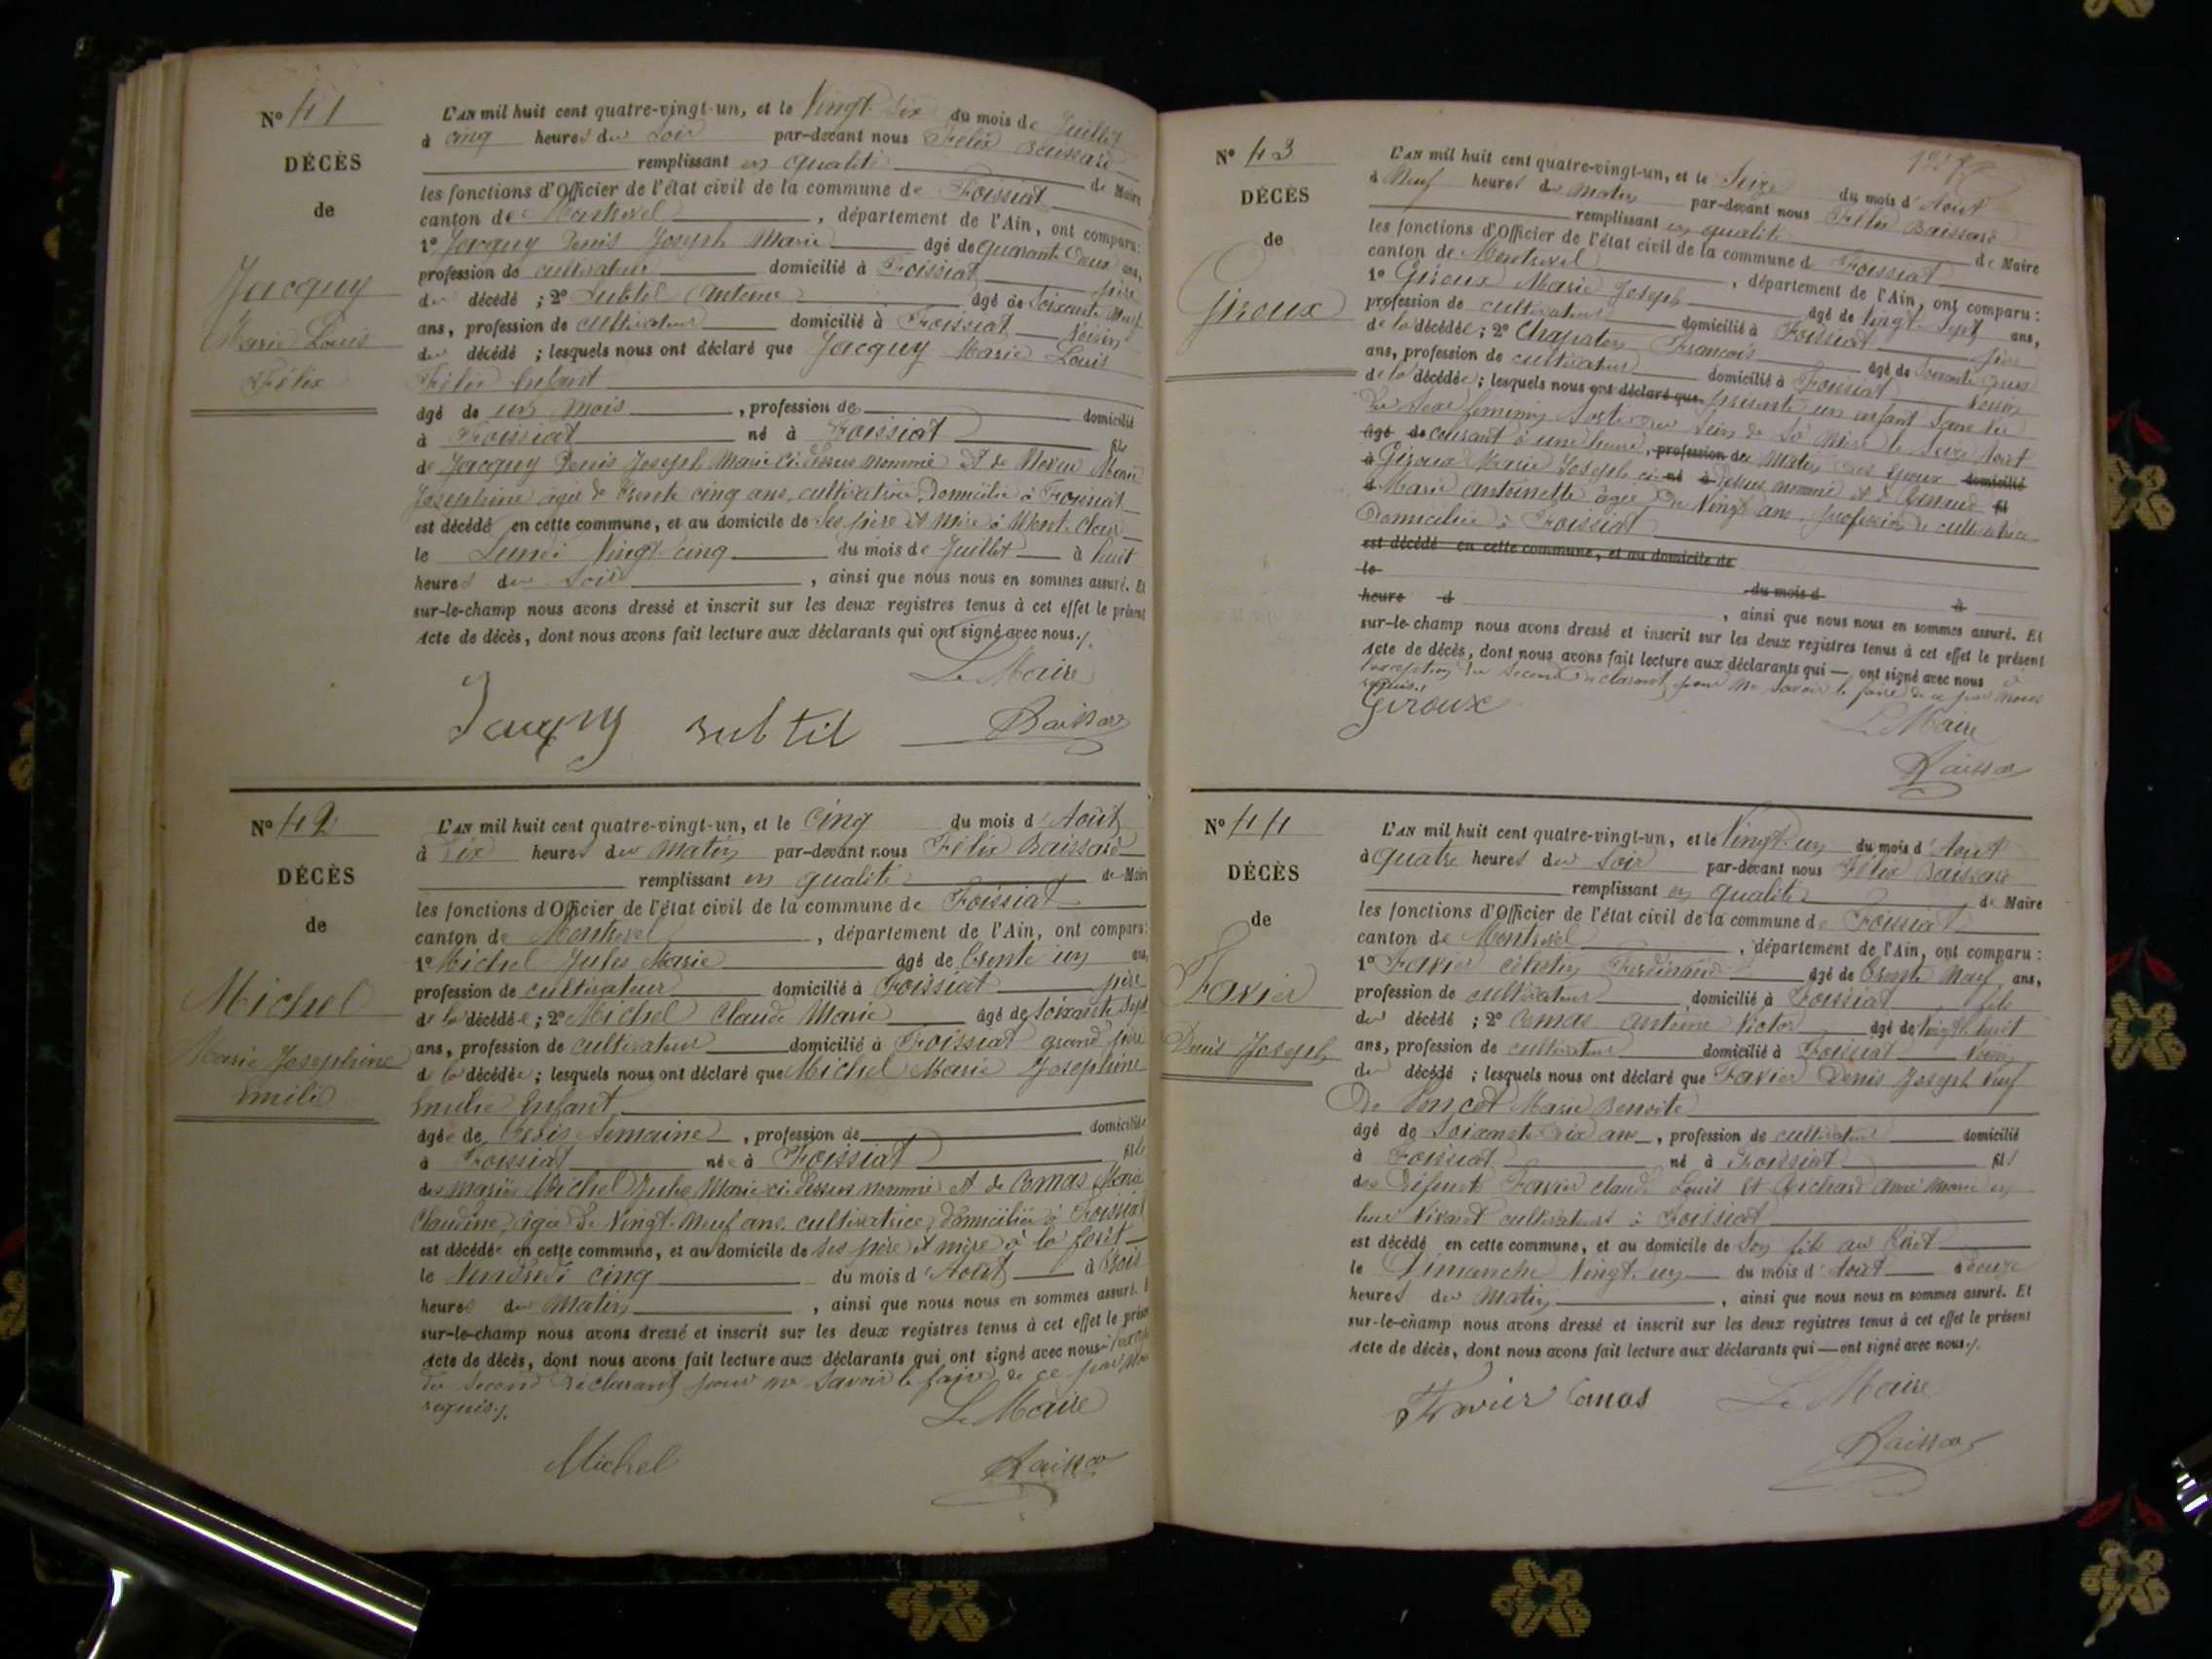 N° 41
DÉCÈS
de
Jacquy
Marie Louis
Félix
L'AN mil huit cent quatre-vingt-un, et le Vingt Six du mois de Juillet
à cinq heures du Soir par-devant nous Félix Baissard
remplissant en qualité de Maire
les fonctions d'Officier de l'état civil de la commune de Foissiat
canton de Montrevel, département de l'Ain, ont comparu:
1° Jacquy Denis Joseph Marie âgé de quarante Deux ans,
profession de cultivateur domicilié à Foissiat père
du décédé ; 2° Subtil Antoine âgé de Soixante Neuf
ans, profession de cultivateur domicilié à Foissiat Voisin
du décédé ; lesquels nous ont déclaré que Jacquy Marie Louis
Félix Enfant
âgé de un Mois, profession de domicilié
à Foissiat né à Foissiat fils
de Jacquy Denis Joseph Marie ci-dessus nommé et de Marie
Josephine agée de trente cinq ans, cultivatrice, Domiciliée à Foissiat
est décédé en cette commune, et au domicile de Ses père et Mère à
le Lundi Vingt cinq du mois de Juillet à huit
heures du Soir, ainsi que nous nous en sommes assuré. Et
sur-le-champ nous avons dressé et inscrit sur les deux registres tenus à cet effet le présent
Acte de décès, dont nous avons fait lecture aux déclarants qui ont signé avec nous ./.
Le Maire
Jacquy Subtil Baissard
N° 42
DÉCÈS
de
Michel
Marie Josephine
Emilie
L'AN mil huit cent quatre-vingt-un, et le Cinq du mois d'Août
à Dix heures du Matin par-devant nous Félix Baissard
remplissant en qualité de Maire
les fonctions d'Officier de l'état civil de la commune de Foissiat
canton de Montrevel, département de l'Ain, ont comparu:
1° Michel Jules Marie âgé de trente un ans,
profession de cultivateur domicilié à Foissiat père
de la décédée ; 2° Michel Claude Marie âgé de soixante Sept
ans, profession de cultivateur domicilié à Foissiat grand père
de la décédée ; lesquels nous ont déclaré que Michel Marie Josephine
Emilie Enfant
âgée de trois Semaines, profession de domiciliée
à Foissiat née à Foissiat fille
des mariés Michel Jules Marie ci-dessus nommé et de Comas Marie
Claudine, agée de Vingt-Neuf ans, cultivatrice, domiciliée à Foissiat
est décédée en cette commune, et au domicile de ses père et mère à la forêt
le Vendredi cinq du mois d'Août à trois
heures du Matin, ainsi que nous nous en sommes assuré.
sur-le-champ nous avons dressé et inscrit sur les deux registres tenus à cet effet le présent
Acte de décès, dont nous avons fait lecture aux déclarants qui ont signé avec nous
du second Déclarant pour ne savoir le faire de ce par
requis ./.
Le Maire
Michel Baissard
N° 43
DÉCÈS
de
Giroux
L'AN mil huit cent quatre-vingt-un, et le Seize du mois d'Août
à Neuf heures du Matin par-devant nous Félix Baissard
remplissant en qualité de Maire
les fonctions d'Officier de l'état civil de la commune de Foissiat
canton de Montrevel, département de l'Ain, ont comparu :
1° Giroux Marie Joseph âgé de Vingt Sept ans,
profession de cultivateur domicilié à Foissiat père
de la décédée ; 2° Chapaton Francois âgé de Soixante
ans, profession de cultivateur domicilié à Foissiat Voisin
de la décédée ; lesquels nous ont déclaré que présenté un enfant Sans Vie
Du Sexe feminin Sorti du Sein de Sa Mère le Seize Août
âgé de courant à une heure, profession de du Matin des Epoux domicilié
à Giroux Marie Joseph ci né à Dessus nommé et de Renaud fil
Marie Antoinette agée De Vingt ans, profession de cultivatrice
Domiciliée à Foissiat
est décédé en cette commune, et au domicile de
le du mois d à
heure d , ainsi que nous nous en sommes assuré. Et
sur-le-champ nous avons dressé et inscrit sur les deux registres tenus à cet effet le présent
Acte de décès, dont nous avons fait lecture aux déclarants qui — ont signé avec nous à
l'exception du second Déclarant pour ne savoir le faire de ce par nous
requis ./.
Giroux
Le Maire
Baissard
N° 44
DÉCÈS
de
Favier
Denis Joseph
L'AN mil huit cent quatre-vingt-un, et le Vingt-un du mois d'Août
à quatre heures du Soir par-devant nous Félix Baissard
remplissant en qualité de Maire
les fonctions d'Officier de l'état civil de la commune de Foissiat
canton de Montrevel, département de l'Ain, ont comparu :
1° Favier Célestin Ferdinand âgé de trente Neuf ans,
profession de cultivateur domicilié à Foissiat fils
du décédé ; 2° Comas Antoine Victor âgé de Vingt huit
ans, profession de cultivateur domicilié à Foissiat Voisin
du décédé ; lesquels nous ont déclaré que Favier Denis Joseph Veuf
De Poncet Marie Benoite
âgé de Soixante dix ans, profession de cultivateur domicilié
à Foissiat né à Foissiat fils
des Défunts Favier Claude Louis et Richard Anne Marie en
leur Vivant cultivateurs à Foissiat
est décédé en cette commune, et au domicile de Son fils au
le Dimanche Vingt-un du mois d'Août à douze
heures du Matin, ainsi que nous nous en sommes assuré. Et
sur-le-champ nous avons dressé et inscrit sur les deux registres tenus à cet effet le présent
Acte de décès, dont nous avons fait lecture aux déclarants qui — ont signé avec nous ./.
Favier Comas Le Maire
Baissard